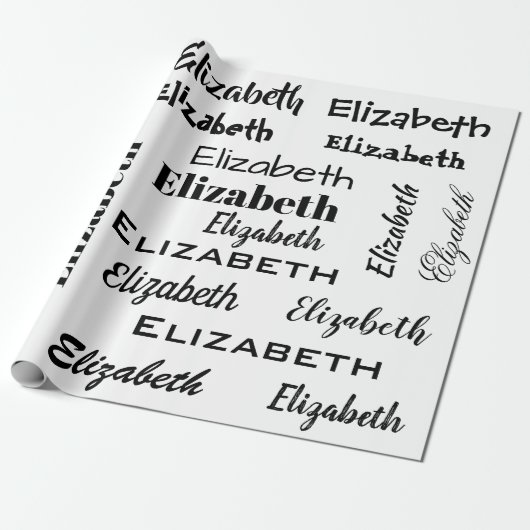 Elizabeth
Elizabeth
Elizabeth
Elizabeth
Elizabeth
Elizabeth
Elizabeth
Elizabeth
Elizabeth
Elizabeth
ELIZABETH
Elizabeth
Elizabeth
ELIZABETH
Elizabeth
Elizabeth